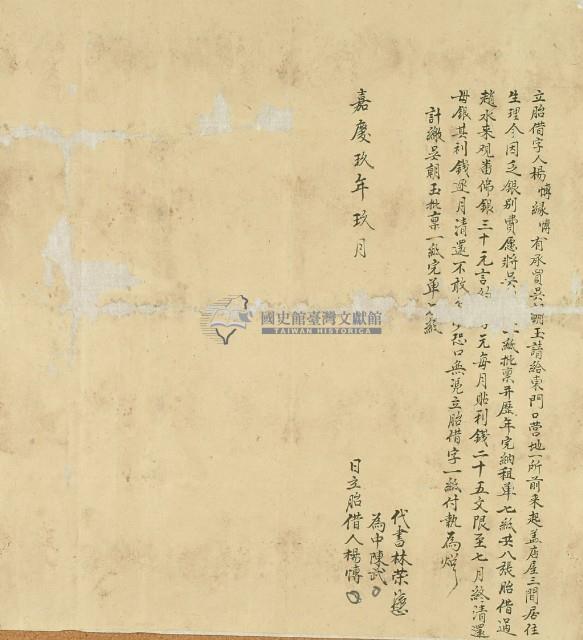 立胎借字人楊愽緣愽有承買吳朝玉請給東門口營地一所前來起盖店屋三間居住
生理今因乏銀別費愿將吳一紙批稟并歷年完納租單七紙共八張胎借過
趙水来观番佛銀三十元言約元每月貼利錢二十五文限至七月終清還
母銀其利錢逐月清還不敢少恐口無凭立胎借字一紙付執為炤
計繳吳朝玉批稟一紙完單七紙
代書林荣
為中陳武
嘉慶玖年玖月日立胎借人楊愽
國史館臺灣文獻館
TAIWAN HISTORICA